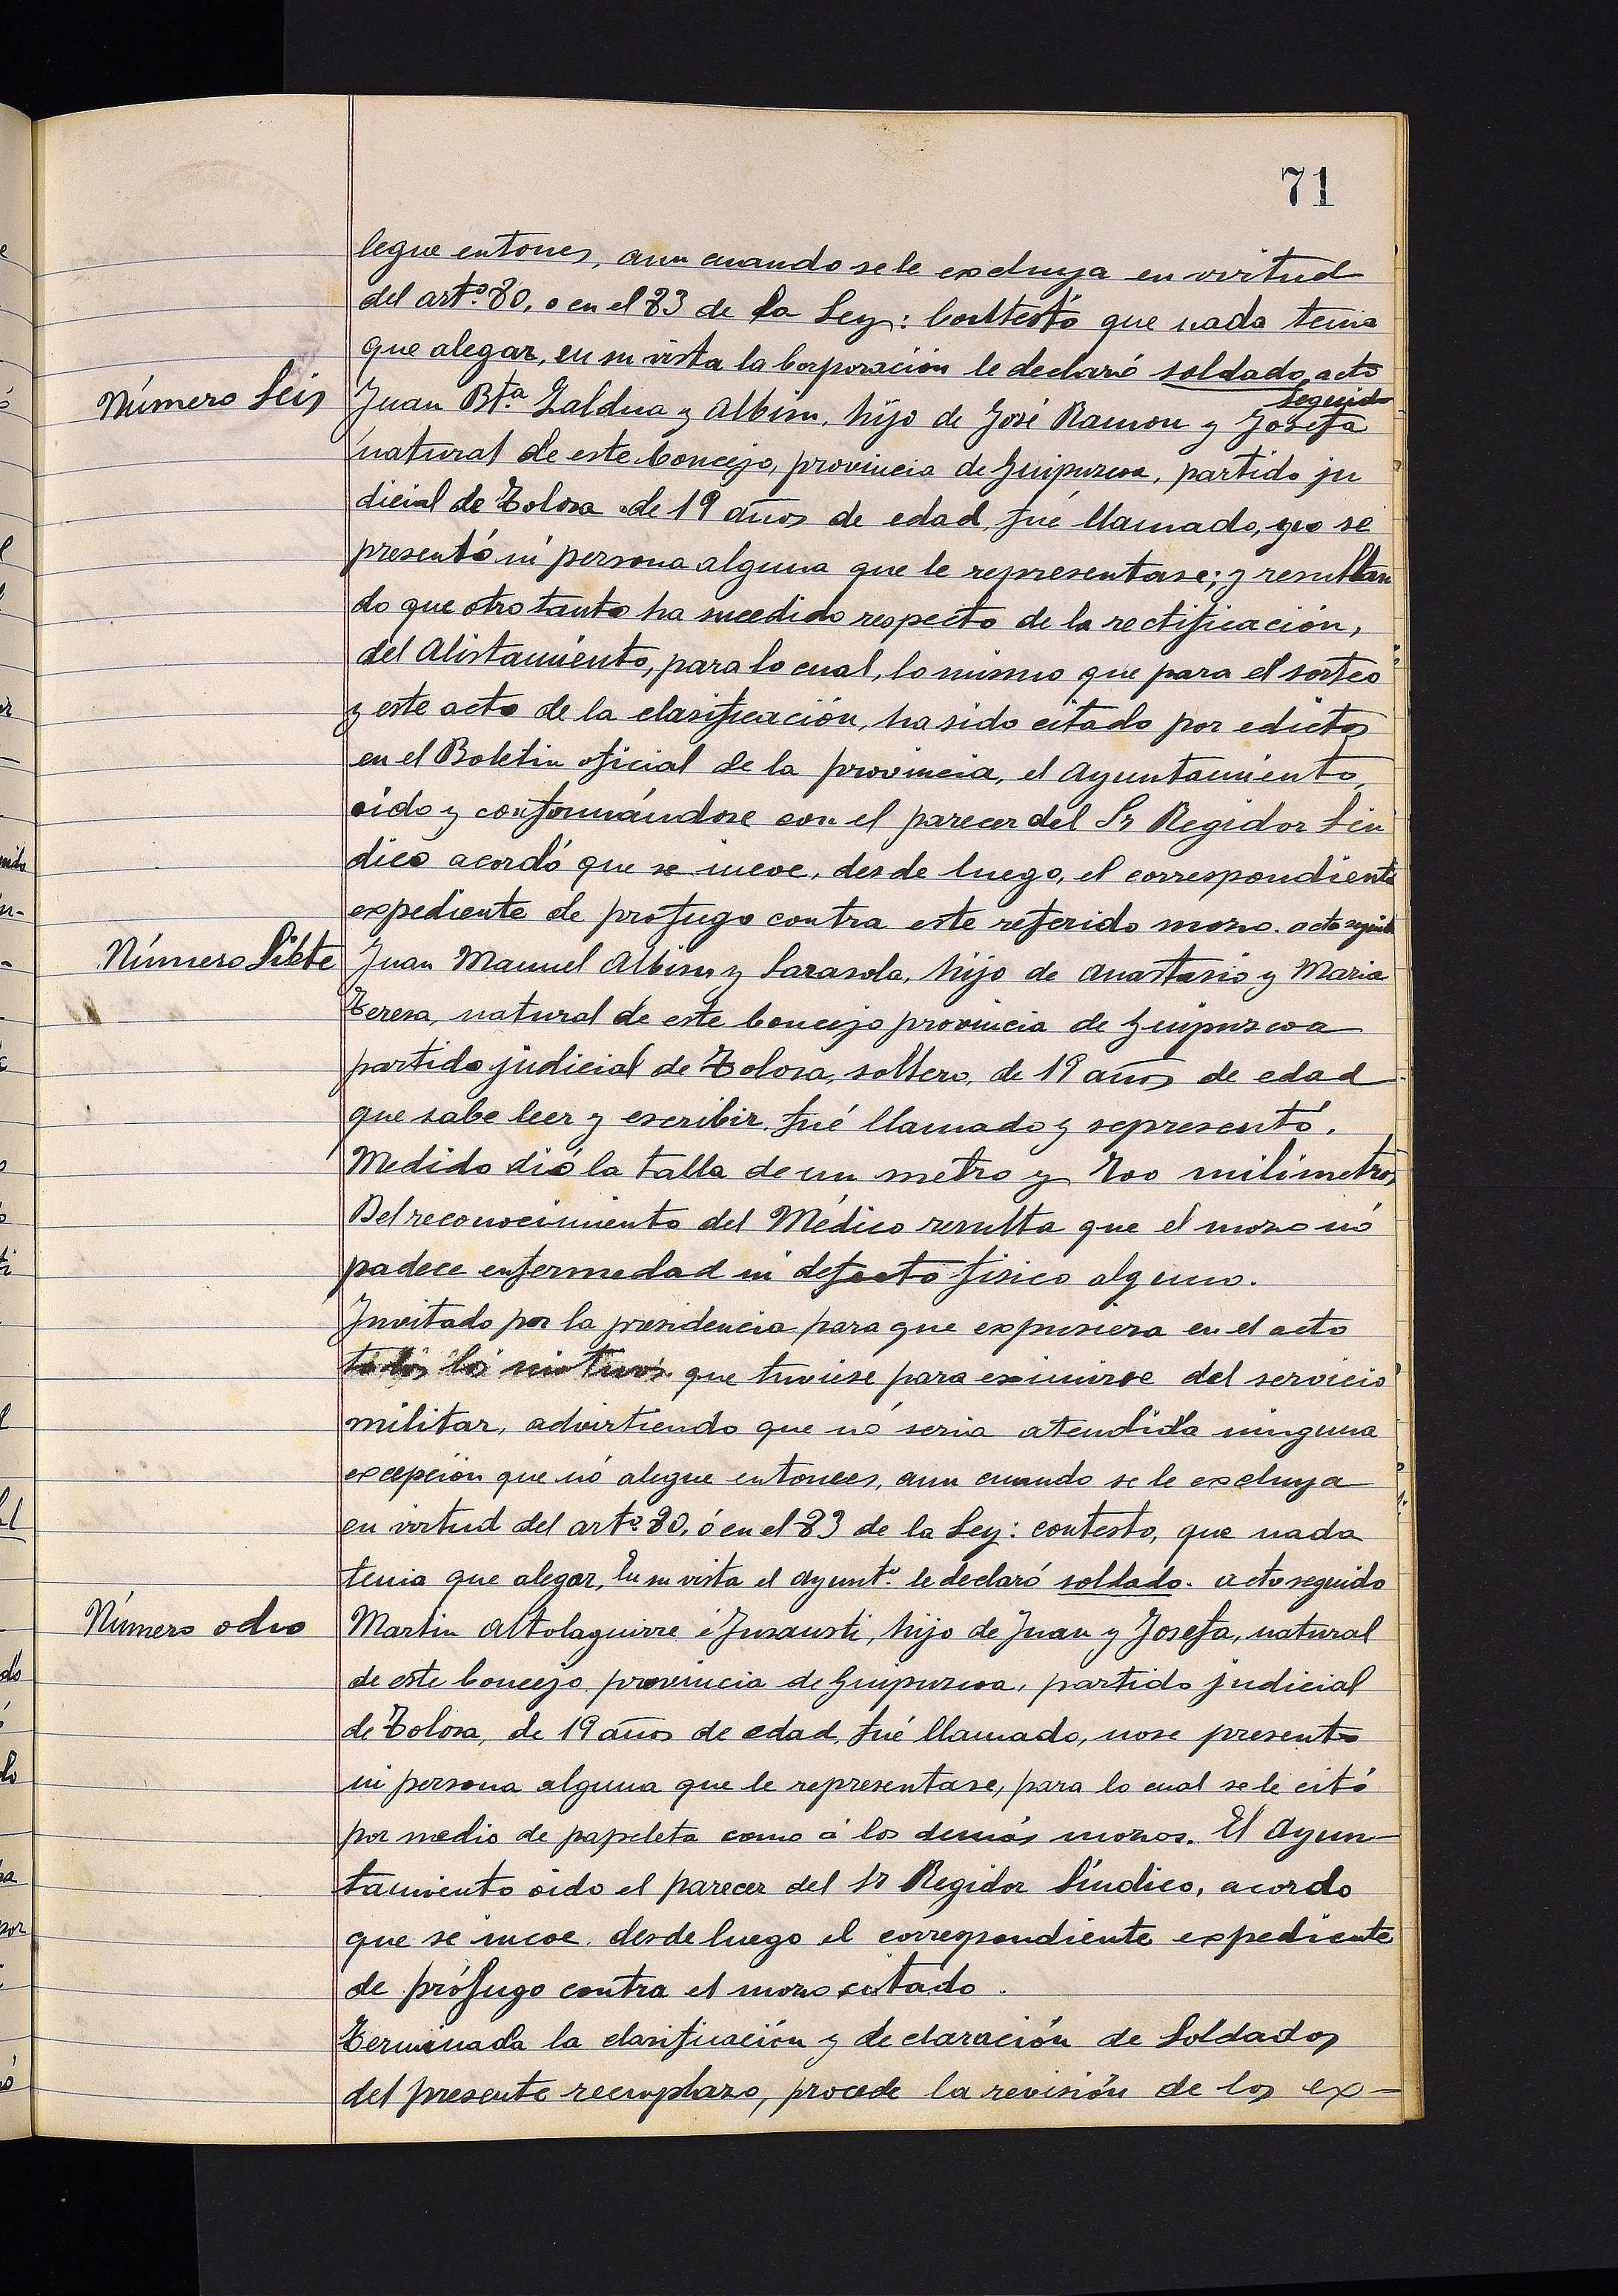 71
legue entonces, aun cuando se le excluya en virtud
del artº 80, o en el 83 de la Ley: Contestó que nada tenia
que alegar, en su vista la Corporación le declaró soldado, acto
seguido
Número Seis
Juan Bta. Zaldua y Albisu, hijo de José Ramon y Josefa
natural de este Concejo, provincia de Guipuzcoa, partido ju
dicial de Tolosa de 19 años de edad, fué llamado, y no se
presentó ni persona alguna que le representase; y resultan
do que otro tanto ha sucedido respecto de la rectificación,
del Alistamiento, para lo cual, lo mismo que para el sorteo
y este acto de la clasificación, ha sido citado por edictos
en el Boletin oficial de la provincia, el Ayuntamiento,
oido y conformándose con el parecer del Sr Regidor Sin
dico acordó que se incoe, desde luego, el correspondiente
expediente de profugo contra este referido mozo. acto seguido
Número Siete
Juan Manuel Albisu y Sarasola, hijo de Anastasio y Maria
Teresa, natural de este Concejo provincia de Guipuzcoa
partido judicial de Tolosa, soltero, de 19 años de edad
que sabe leer y escribir, fué llamado y se presentó.
Medido dió la talla de un metro y 700 milimetros
Del reconocimiento del Médico resulta que el mozo nó
padece enfermedad ni defecto fisico alguno.
Invitado por la presidencia para que expusiera en el acto
todos los motivos que tuviese para eximirse del servicio
militar, advirtiendo que nó seria atendida ninguna
excepción que nó alegue entonces, aun cuando se le excluya
en virtud del artº 80, ó en el 83 de la Ley: contesto, que nada
tenia que alegar, En su vista el Ayuntº. le declaró soldado. acto seguido
Número ocho
Martin Altolaguirre é Insausti, hijo de Juan y Josefa, natural
de este Concejo provincia de Guipuzcoa, partido judicial
de Tolosa, de 19 años de edad, fué llamado, no se presento
ni persona alguna que le representase, para lo cual se le citó
por medio de papeleta como á los demás mozos. El Ayun-
tamiento oido el parecer del Sr Regidor Síndico, acordo
que se incoe desde luego el correspondiente expediente
de prófugo contra el mozo citado.
Terminada la clasificación y declaración de Soldados
del presente reemplazo, procede la revisión de los ex-